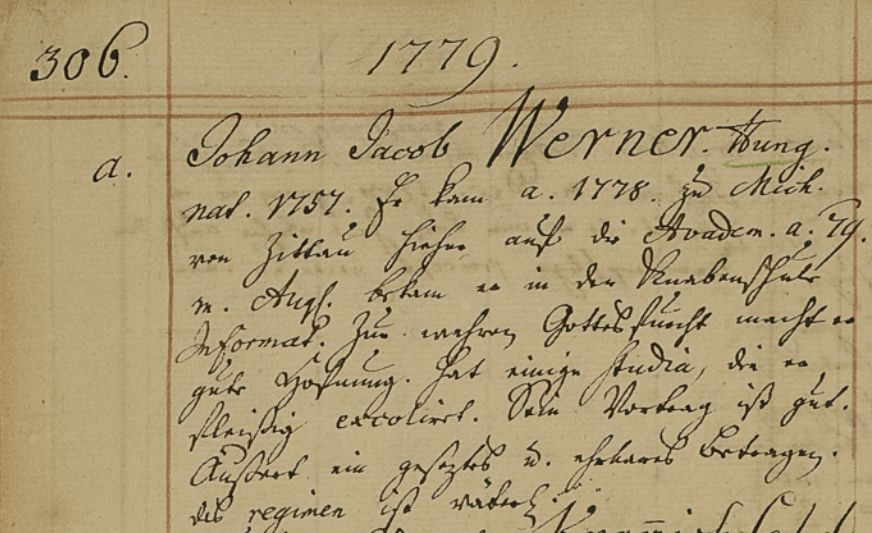 306. 1779.
a. Johann Jacob Werner. Hung.
nat. 1757. Er kam a. 1778. zu Mich.
von Zittau hieher auf die Academ. a. 79.
m. Aug. bekam er in der Knabenschule
Informat. Zur wahren Gottesfurcht macht er
gute Hofnung. Hat einige studia, die er
fleißig excolirt. Sein Vortrag ist gut.
Äußert ein geseztes u. ehrbares Betragen.
das regimen ist väterl.